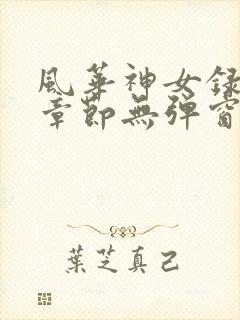 風華神女録
章節無彈窗
葉芝真己